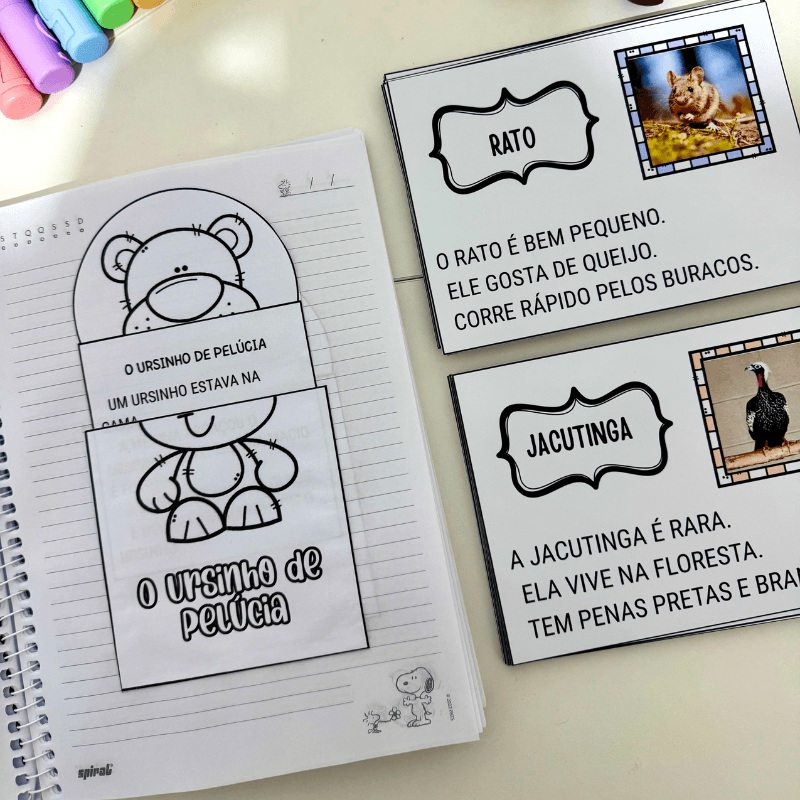 S T Q Q S S D
/ /
O URSINHO DE PELÚCIA
UM URSINHO ESTAVA NA
CAMA
O URSINHO DE
PELÚCIA
spiral
RATO
O RATO É BEM PEQUENO.
ELE GOSTA DE QUEIJO.
CORRE RÁPIDO PELOS BURACOS.
JACUTINGA
A JACUTINGA É RARA.
ELA VIVE NA FLORESTA.
TEM PENAS PRETAS E BRAN